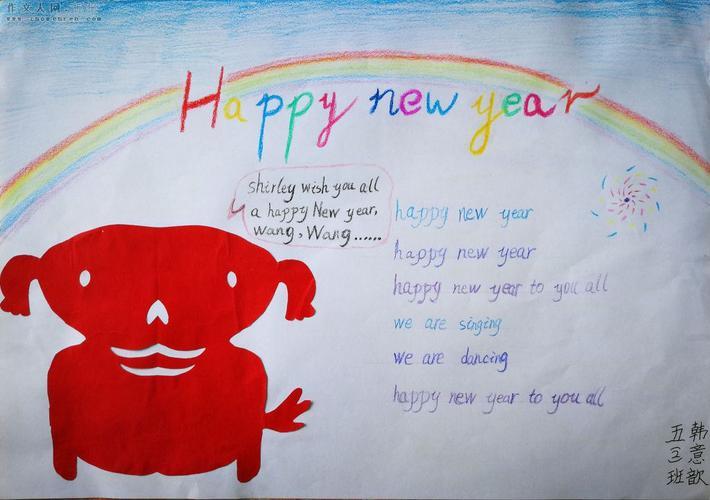 作文人网
www.zhowenren.com
Happy new year
Shirley wish you all
a happy New year,
wang, Wang......
happy new year
happy new year
happy new year to you all
we are singing
we are dancing
happy new year to you all
韩意歆
五3班